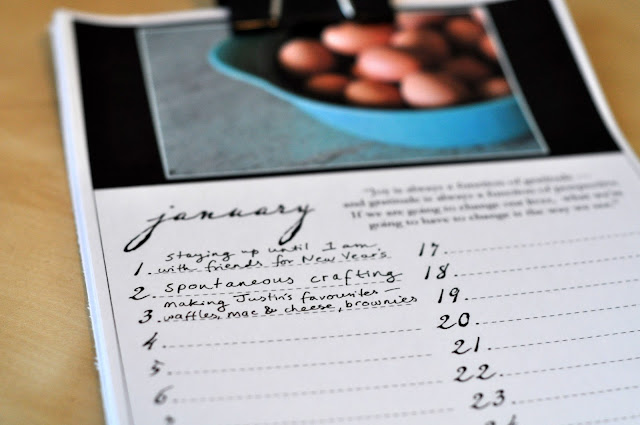 "Joy is always a function of gratitude —
and gratitude is always a function of perspective.
If we are going to change our lives, what we're
going to have to change is the way we see."
january
1. staying up until 1 am
with friends for New Year's
2. spontaneous crafting
3. making Justin's favourites —
waffles, mac & cheese, brownies
4.
5.
6.
17.
18.
19.
20.
21.
22.
23.